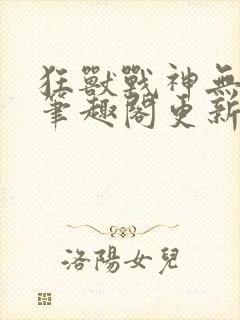 狂獸戰神無
筆趣閣更新
洛陽女兒